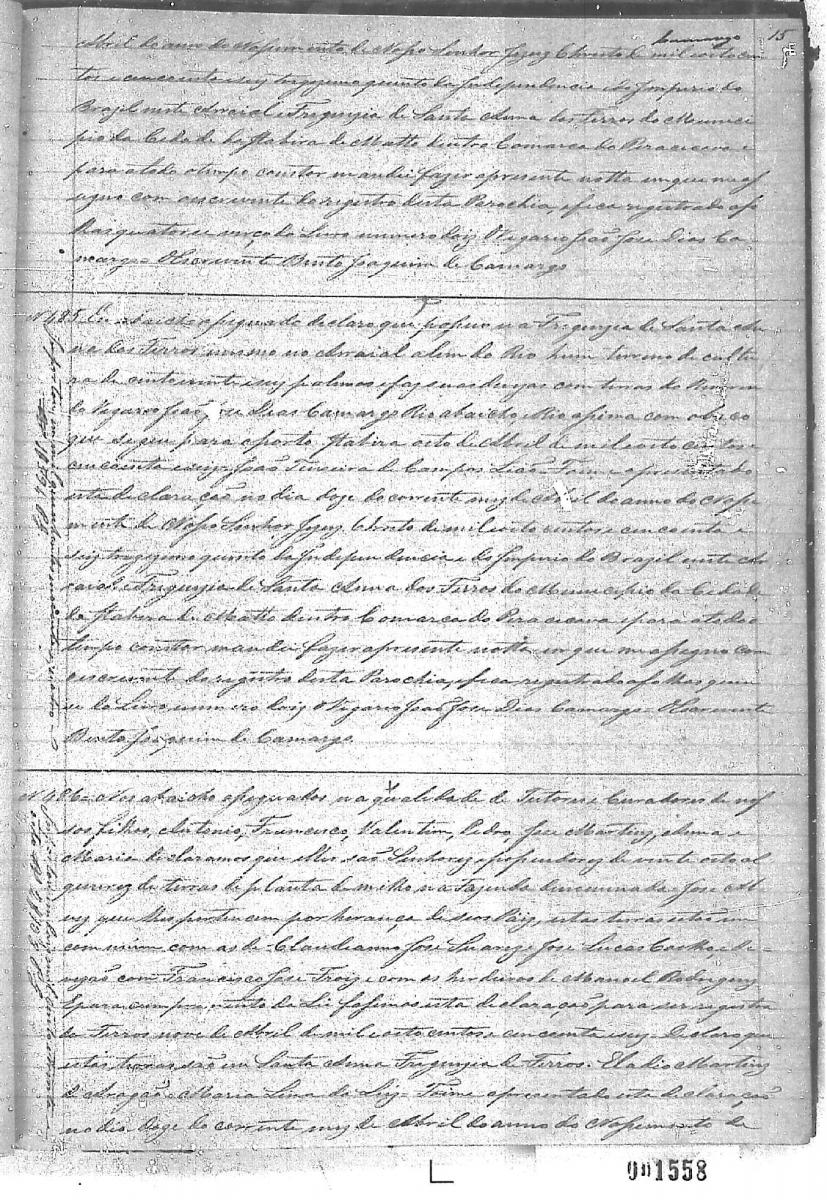 Camargo 15
Abril do anno do Nassimento de Nosso Senhor Jezuz Christo de mil e oito cen
tos e cincoenta e seiz trigezimo quinto da Independencia e do Imperio do
Brazil neste Arraial e Freguezia de Santa Anna dos Ferros do Munici
pio da Cidade da Itabira de Matto dentro Comarca do Piracicava e
para a todo o tempo constar mandei fazer a prezente notta em que me as
signo com o escrevente do registro desta Parochia, e fica registrado a fo
lhas quatorze do Livro numero doiz O Vigario João Jose Dias Ca
margo = O Escrevente Bento Joaquim de Camargo
N 485. Eu abaicho assignado declaro que possuo na Freguezia de Santa An
na dos Ferros mesmo no Arraial alem do Rio hum terreno de cultu
ra de cento e vinte e seiz palmos e faz suas devizas com terras do Reveren
do Vigario João Joze Dias Camargo Rio abaicho, e Rio assima com o beco
que segue para o porto. Itabira oito de Abril de mil e oito centos e
cincoenta e seiz João Teixeira de Campos Leão = Foi me apresentado
esta declaração no dia doze do corrente mez de Abril do anno do Nassi
mento de Nosso Senhor Jezuz Christo de mil e oito centos e cincoenta e
seiz trigezimo quinto da Independencia e do Imperio do Brazil neste Ar
raial e Freguezia de Santa Anna dos Ferros do Municipio da Cidade
da Itabira de Matto dentro Comarca do Piracicava e para a todo o
tempo constar mandei fazer a prezente notta em que me assigno com
o escrevente do registro desta Parochia, e fica registrado a folhas quin
ze do Livro numero doiz O Vigario João Joze Dias Camargo = O Escrevente
Bento Joaquim de Camargo
N 486 = Nos abaicho assignados na qualidade de Tutores e Curadores de nos
sos filhos, Antonio, Francisco, Valentim, Pedro, Joze Martinz, Anna e
Maria declaramos que elles são Senhorez e possuidorez de vinte oito al
queirez de terras de planta de milho na Fazenda denominada = Joze Al
vez que lhes pertencem por herança de seos Paiz, estas terras estão em
commum com as de = Claudianno Joze Suarez e Joze Lucas, e de
vizão com = Francisco Joze Froiz e com os herdeiros de Manoel Rodriguez
E para cumprimento da Lei fassimos esta declaração para ser registra
da Ferros nove de Abril de mil e oito centos e cincoenta e seiz = Declaro que
estas terras são em Santa Anna Freguezia de Ferros. Eladio Martinz
de Aragão = Maria Lina da Luz = Foi me apresentado esta declaração
no dia doze do corrente mez de Abril do anno do Nassimento de
001558